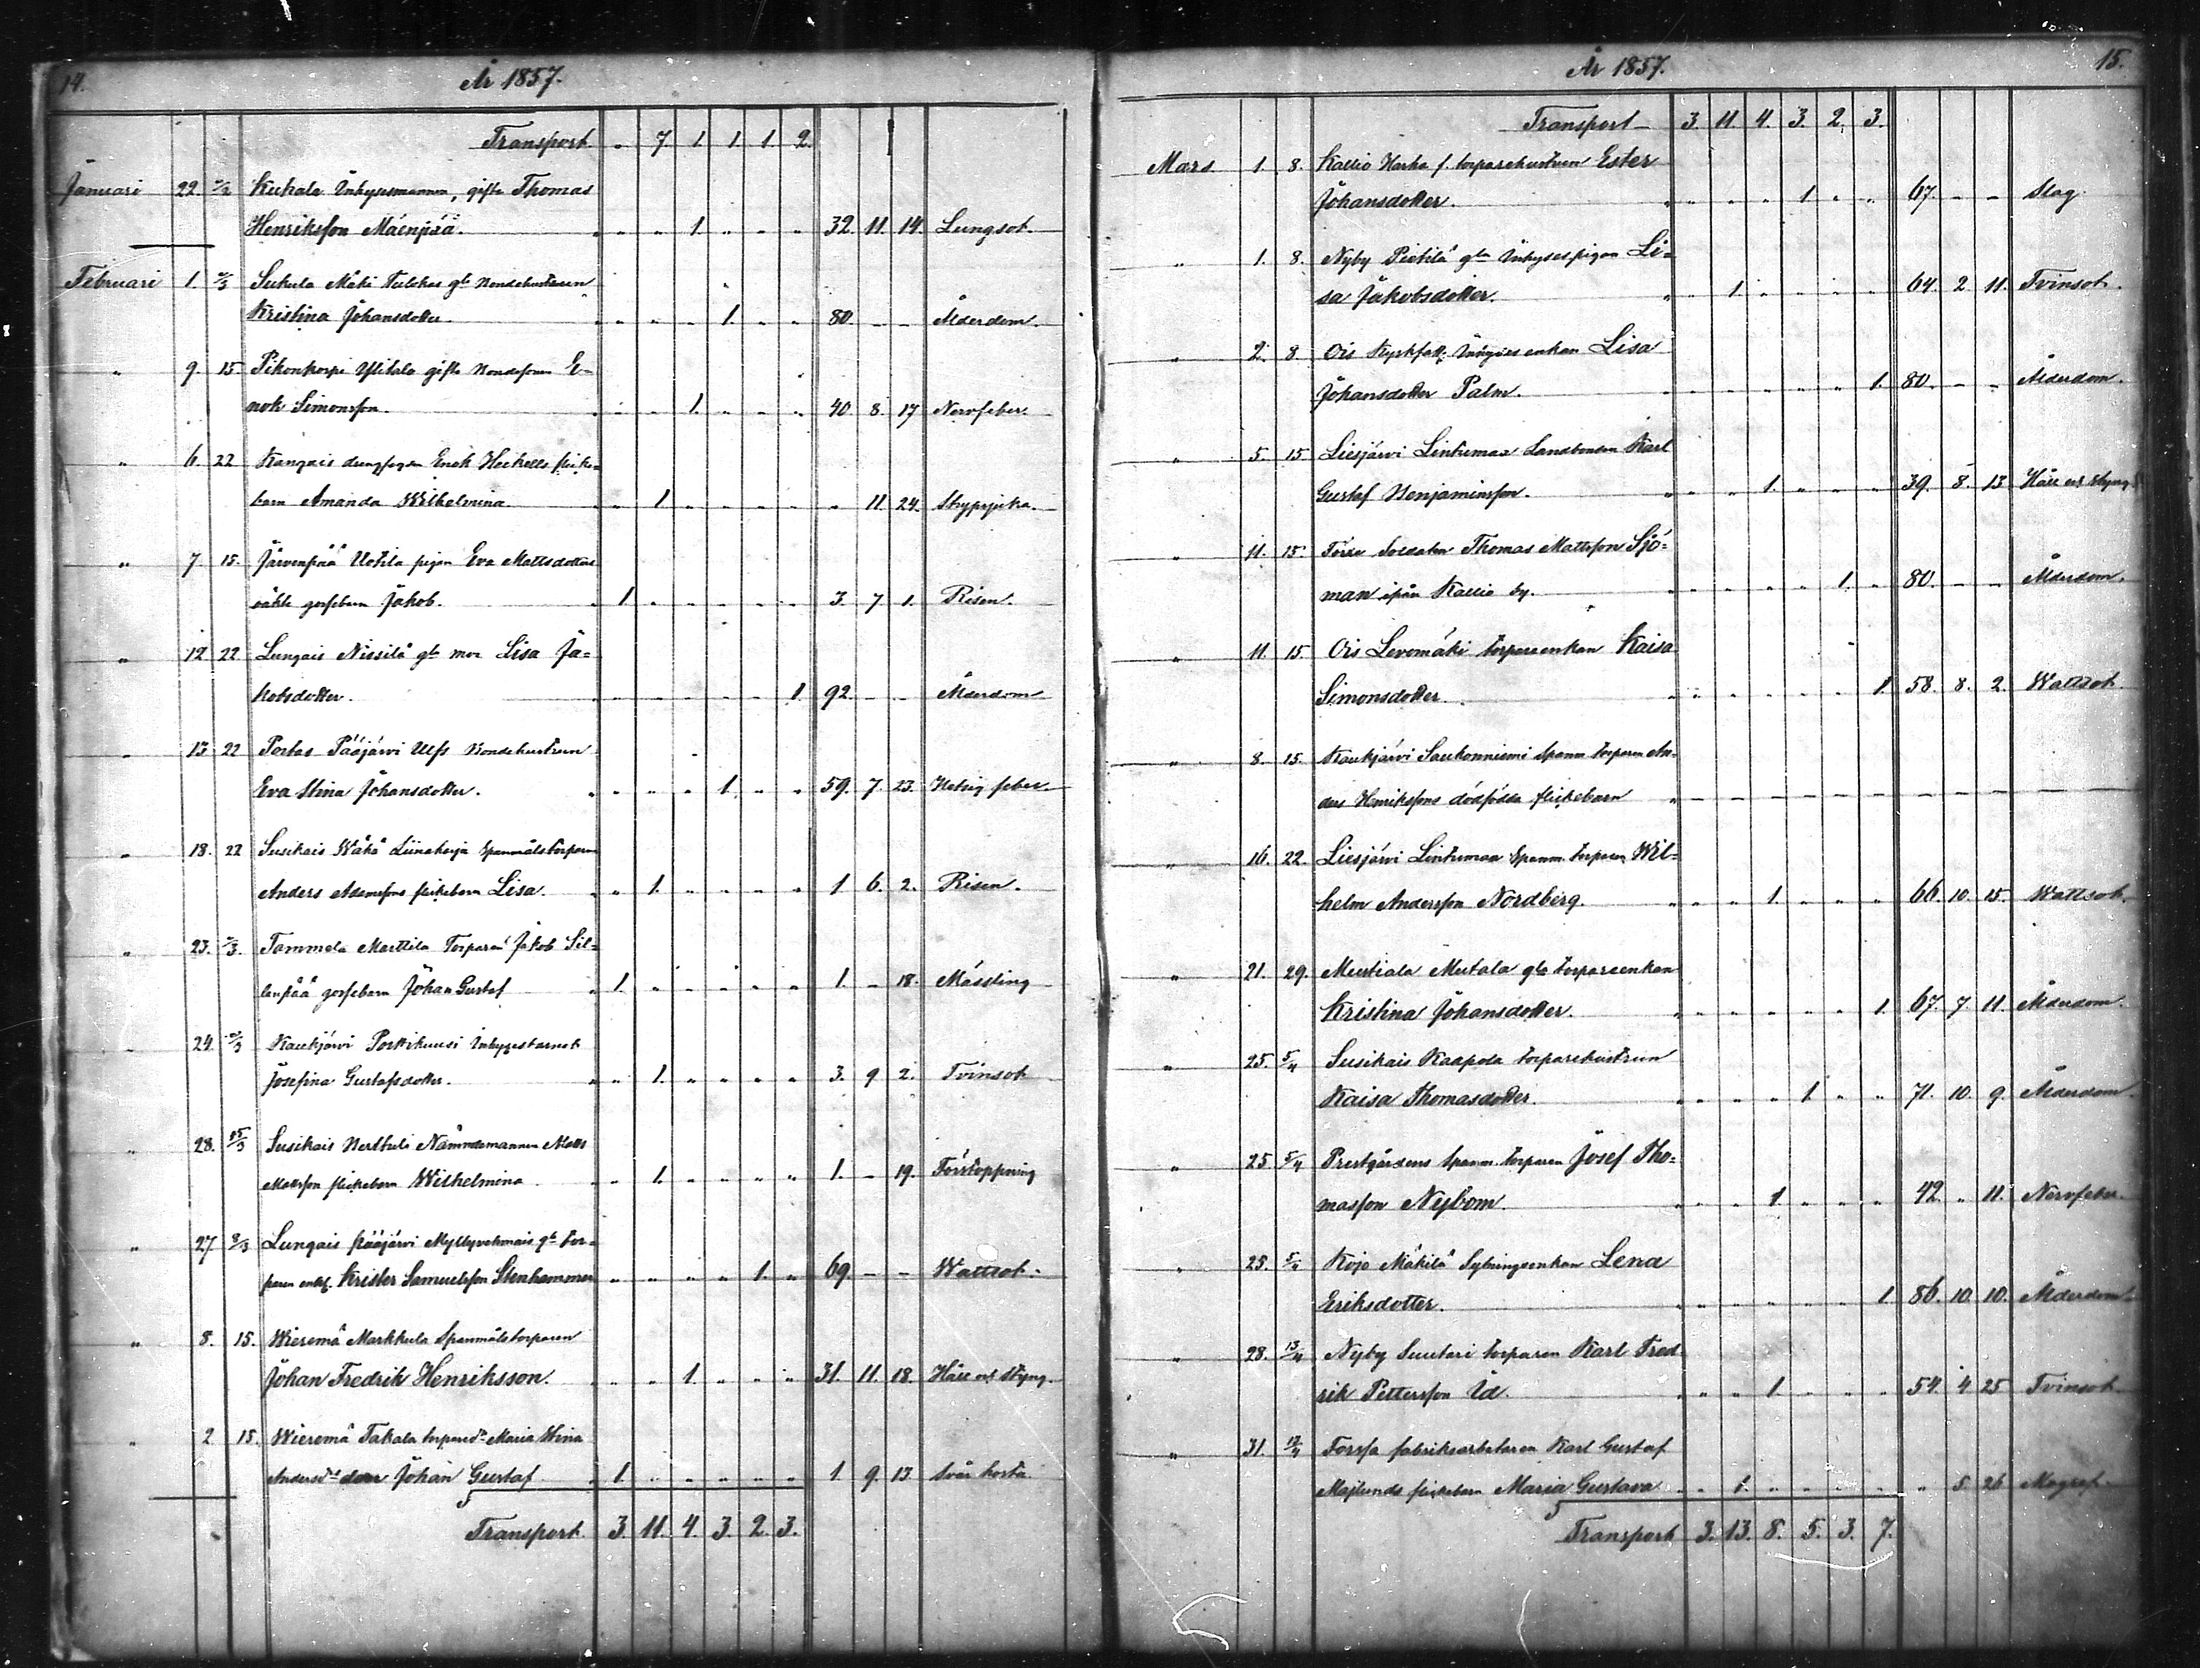 14.
År 1857.
Transport " 7 1 1 1 2.
Januari 22. Kukala Inhysesmannen, gifte Thomas
Henriksson Mäenpää. 1. 32. 11. 14. Lungsot.
Februari 1. Sukula Mäki Bondehustrun
Kristina Johansdotter. 1. 80. - - Ålderdom.
" 9. 15. Pikonkorpi Ylitalo gifte Bondesonen E-
nok Simonsson. 1. 40. 8. 17 Nervfeber.
" 6. 22 Kangais Enok Heckells flicke-
barn Amanda Wilhelmina 1. " 11. 24. Strypsjuka.
" 7. 15. Järvenpää Uotila pigan Eva Mattsdotters
oäkta gossebarn Jakob. 1. 3. 7 1. Risen.
" 12 22 Lungais Nissilä gla mor Lisa Ja-
kobsdotter. 1. 92. - - Ålderdom
" 13. 22 Portas Pääjärvi Ulfs Bondehustrun
Eva Stina Johansdotter. 1. 59. 7. 23. Hetsig feber.
" 18. 22 Susikais Liinaharja Spanmålstorparen
Anders Adamssons flickebarn Lisa. 1. 1 6. 2. Risen.
" 23. Tammela Marttila Torparen Jakob Sil-
lanpää gossebarn Johan Gustaf 1. 1. - 18. Mässling
" 24. Kaukjärvi Porttikuusi Inhysesbarnet
Josefina Gustafsdotter. 1. 3. 9 2. Tvinsot
" 28. 15/3 Susikais Nämndemannen Matts
Mattsson flickebarn Wilhelmina 1. 1. - 19. Förstoppning
" 27 8/3 Lungais Pääjärvi gle tor-
paren enkl. Krister Samuelsson Stenhammer 1. 69. - - Wattsot.
" 8. 15. Wieremä Markkula Spanmålstorparen
Johan Fredrik Henriksson. 1. 31. 11. 18. Håll och styng.
" 2 15. Wieremä Takala Maria Stina
Johan Gustaf 1. 1. 9. 13 Svår hosta
Transport 3. 11. 4. 3. 2. 3.
15.
År 1857.
Transport 3. 11. 4. 3. 2. 3.
Mars 1. 8. Kallio Harha f. torparehustrun Ester
Johansdotter. 1. 67. - - Slag.
" 1. 8. Nyby Pietilä gla Inhysespigan Li-
sa Jakobsdotter. 1. 64. 2 11. Tvinsot.
" 2. 8. Ois Kyrkfatt. Inhysesenkan Lisa
Johansdotter Palm. 1. 80. - - Ålderdom.
" 5. 15. Liesjärvi Lintumaa Landbonden Karl
Gustaf Benjaminsson. 1. 39. 8. 13 Håll och styng.
" 11. 15. Förre Soldaten Thomas Mattsson Sjö-
man ifrån Kallio by. 1. 80. - - Ålderdom.
" 11. 15. Ois Levomäki torpareenkan Kaisa
Simonsdotter. 1. 58. 8. 2. Wattsot.
" 8. 15. Kaukjärvi Saukonniemi Spanm. torparen An-
ders Henrikssons dödfödda flickebarn
" 16. 22. Liesjärvi Lintumaa Spanm. torparen Wil-
helm Andersson Nordberg. 1. 66. 10. 15. Wattsot.
" 21. 29. Mustiala Mutala gla torpareenkan
Kristina Johansdotter. 1. 67. 7. 11. Ålderdom.
" 25. 5/4 Susikais Kaapola torparehustrun
Kaisa Thomasdotter. 1. 71. 10. 9. Ålderdom.
" 25. 5/4 Prestgårdens Spanm. torparen Josef Tho-
masson Nybom. 1. 42. " 11. Nervfeber.
" 25. 5/4 Kojo Mäkilä Sytningsenkan Lena
Eriksdotter. 1. 86. 10. 10. Ålderdom.
" 28. 13/4 Nyby Suutari torparen Karl Fred-
rik Pettersson Id. 1. 54. 4 25 Tvinsot.
" 31. 12/4 Forssa fabriksarbetaren Karl Gustaf
Majlunds flickebarn Maria Gustava 1. " 5. 26
Transport 3. 13. 8. 5. 3. 7.